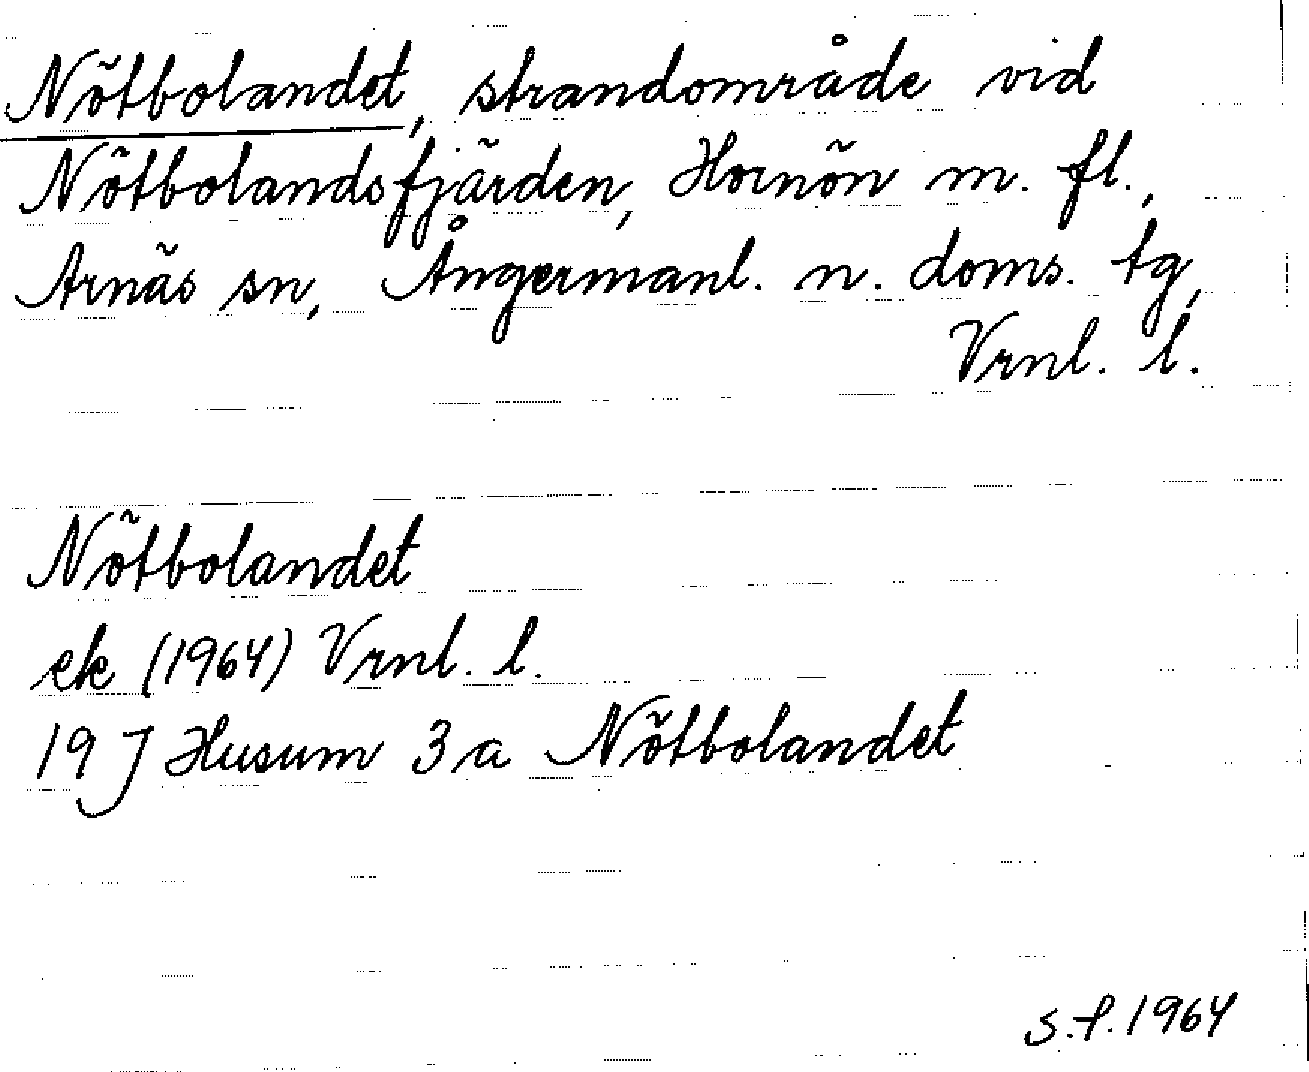 Nötbolandet, strandområde vid
Nötbolandsfjärden, Hornön m. fl.,
Arnäs sn, Ångermanl. n. doms. tg,
Vrnl. l.
Nötbolandet
ek (1964) Vrnl. l.
19 J Husum 3 a Nötbolandet
s.f. 1964